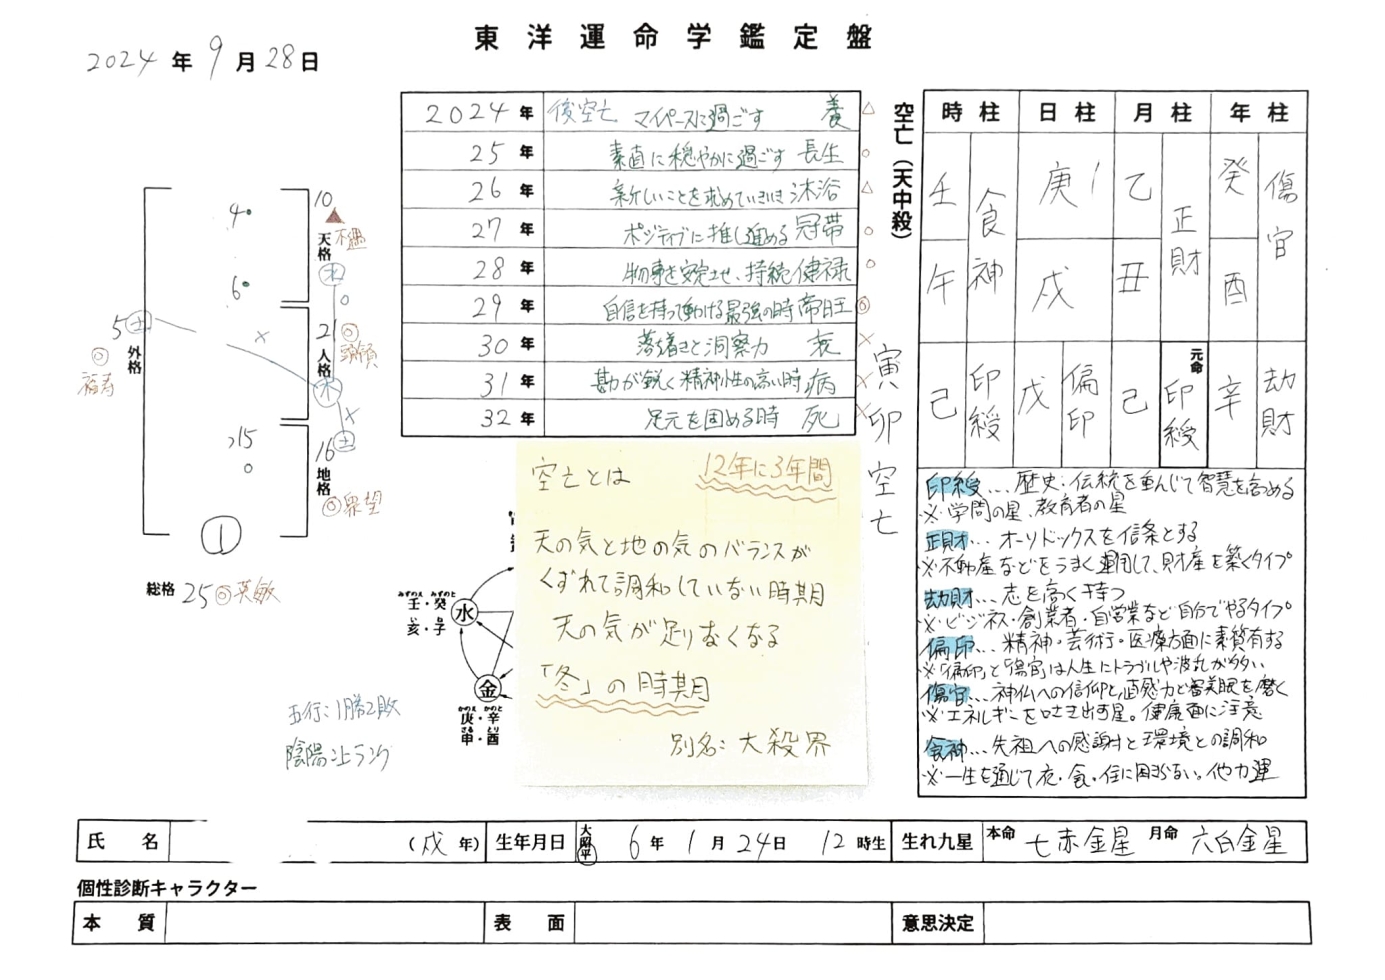 東洋運命学鑑定盤
2024年9月28日
2024年 後空亡 マイペースに過ごす 養 △
25年 素直に穏やかに過ごす 長生 ○
26年 新しいことを求めていきいき 沐浴 △
27年 ポジティブに推し進める 冠帯 ○
28年 物事を安定させ、持続 健禄 ○
29年 自信を持って動ける最強の時 帝旺 ◎
30年 落着きと洞察力 衰 ×
31年 勘が鋭く精神性の高い時 病 ×
32年 足元を固める時 死 ×
空亡(天中殺)
寅卯空亡
時柱 日柱 月柱 年柱
壬 食神 庚 乙 正財 癸 傷官
午 戌 丑 酉
元命
己 印綬 戊 偏印 己 印綬 辛 劫財
印綬…歴史・伝統を重んじて智慧を高める
※学問の星、教育者の星
正財…オーソドックスを信条とする
※不動産などをうまく運用して、財産を築くタイプ
劫財…志を高く持つ
※ビジネス・創業者・自営業など自分でやるタイプ
偏印…精神・芸術・医療方面に素質有する
※「偏印」と「傷官」は人生にトラブルや波乱が多い
傷官…神仏への信仰と直感力と審美眼を磨く
※エネルギーを吐き出す星。健康面に注意
食神…先祖への感謝と環境との調和
※一生を通じて衣・食・住に困らない。他力運
4
10
天格
6
水
5
土
外格
◎
福寿
×
21
◎
人格
頭領
木
×
15
16
土
地格
◎衆望
1
総格 25◎英敏
五行:1勝2敗
陰陽:上ランク
空亡とは 12年に3年間
天の気と地の気のバランスが
くずれて調和していない時期
天の気が足りなくなる
「冬」の時期
別名:大殺界
みずのえ みずのと
壬・癸
水
亥・子
金
かのえ かのと
庚・辛
さる とり
申・酉
氏名 (戌年) 生年月日 大昭平 6年1月24日12時生 生れ九星 本命 七赤金星 月命 六白金星
個性診断キャラクター
本質 表面 意思決定